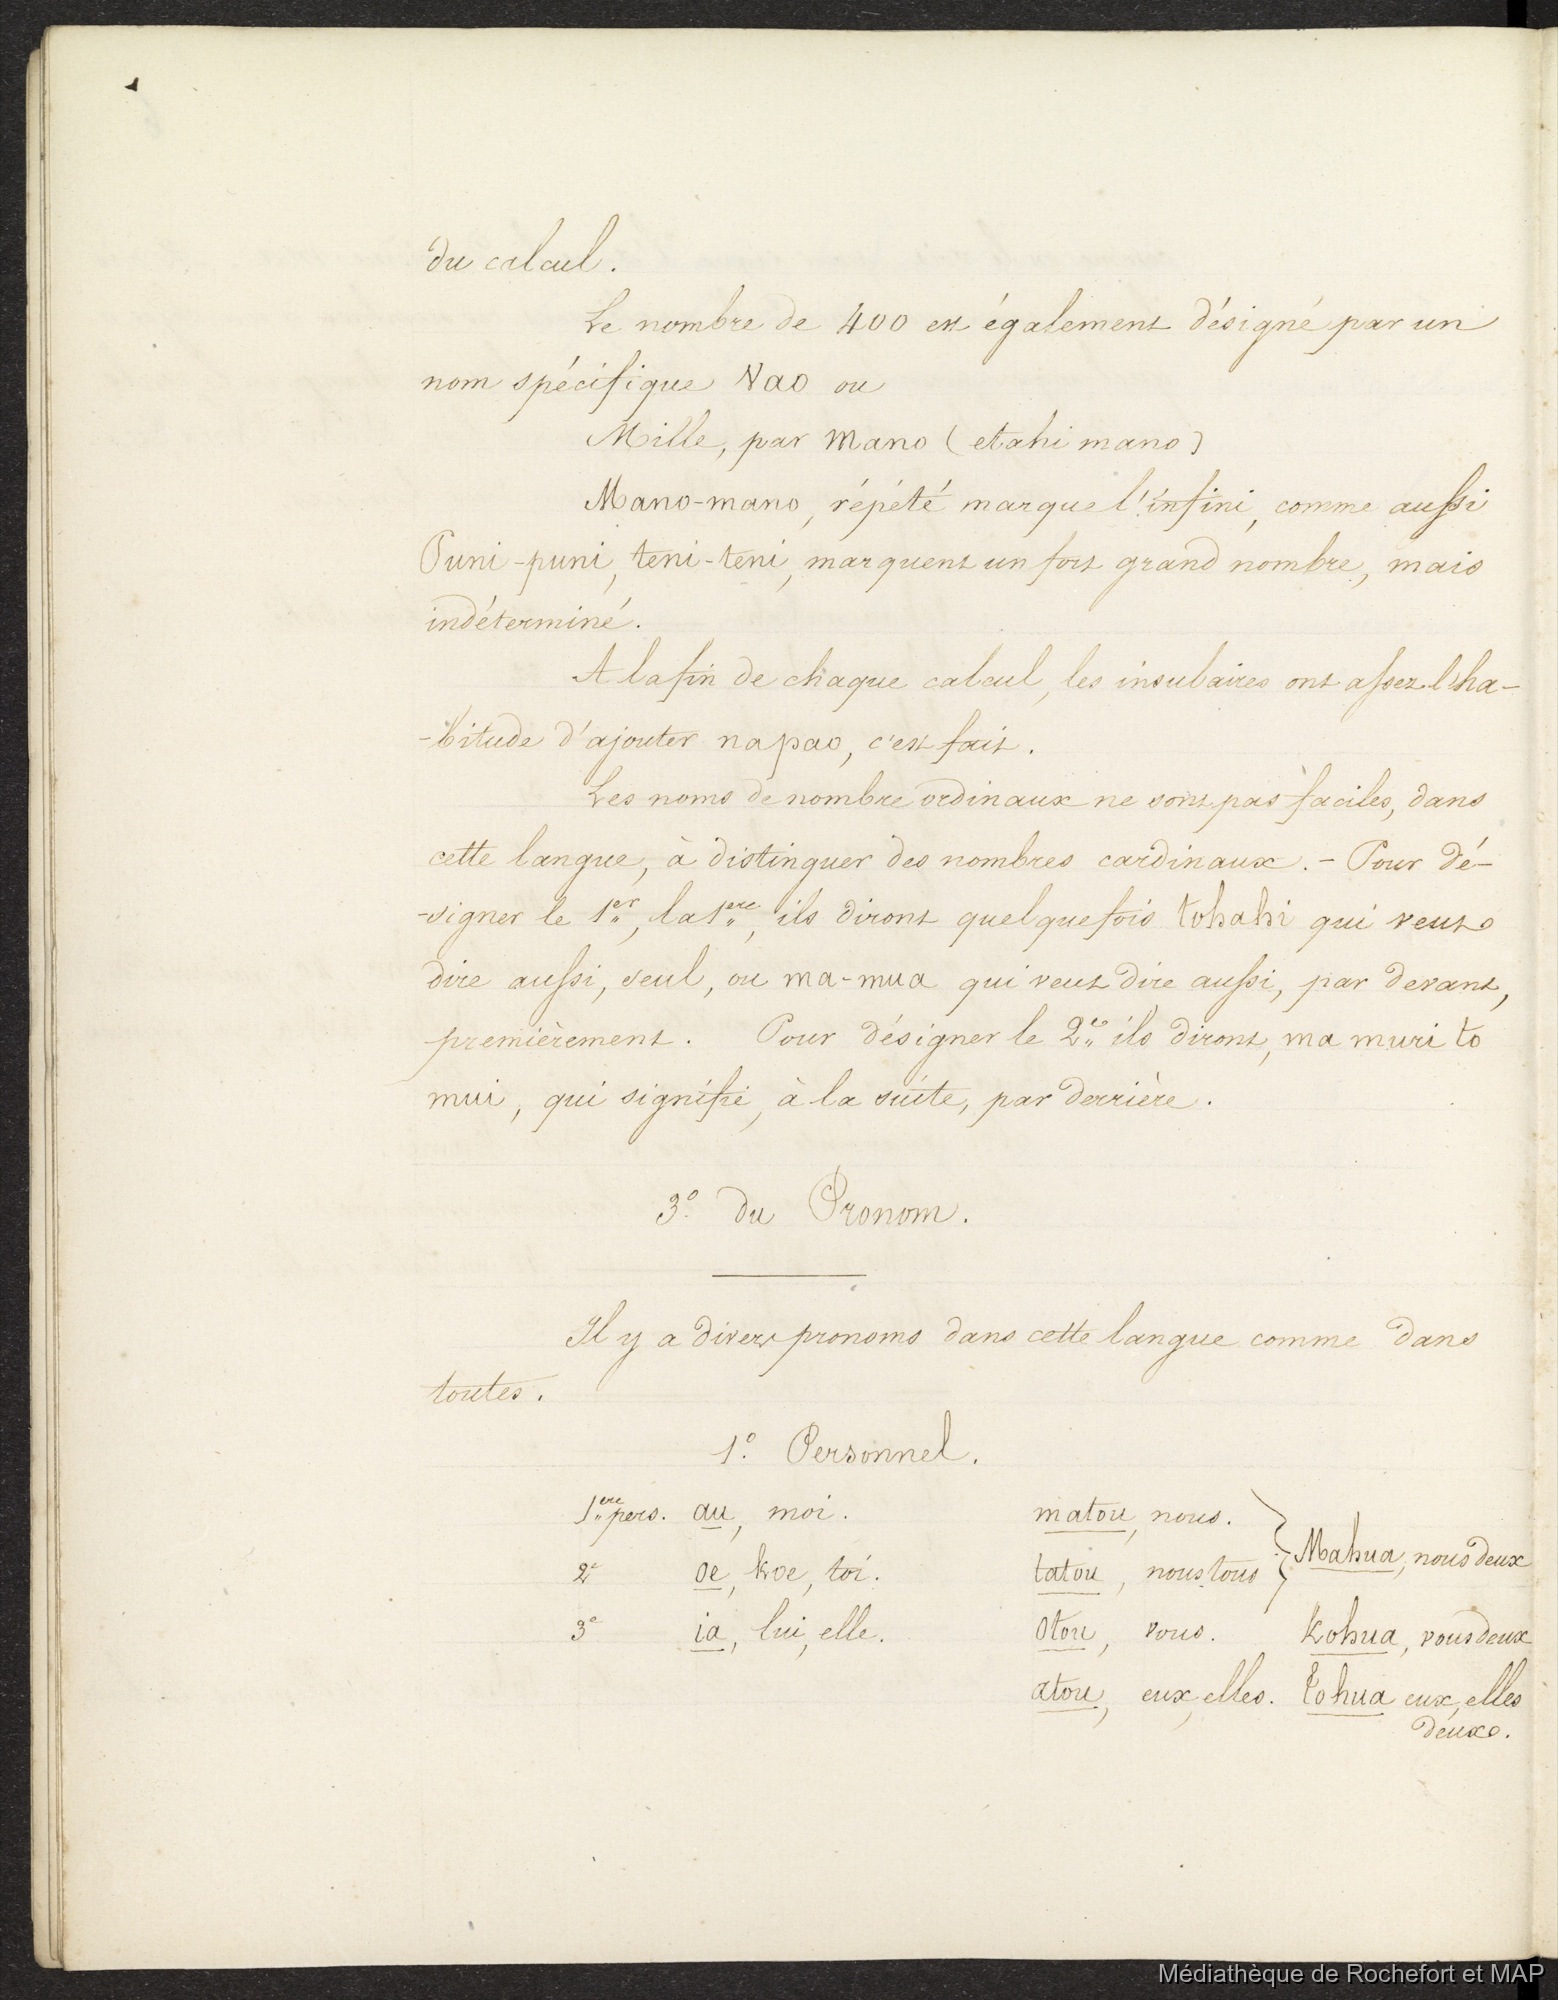 du calcul.
Le nombre de 400 est également désigné par un
nom spécifique Vao ou
Mille, par mano (etahi mano)
Mano-mano, répété marque l'infini, comme aussi
Puni-puni, teni-teni, marquent un fort grand nombre, mais
indéterminé.
A la fin de chaque calcul, les insulaires ont assez l'ha-
-bitude d'ajouter napao, c'est fait.
Les noms de nombre ordinaux ne sont pas faciles, dans
cette langue, à distinguer des nombres cardinaux. - Pour dé-
-signer le 1er, la 1ere, ils diront quelquefois tohahi qui veut
dire aussi, seul, ou ma-mua qui veut dire aussi, par devant,
premièrement. Pour désigner le 2e ils diront, ma muri to
mui, qui signifie, à la suite, par derrière.
3º. du Pronom.
Il y a divers pronoms dans cette langue comme dans
toutes.
1º. Personnel.
1ere pers. au, moi. matou, nous.
Mahua, nous deux
2e oe, koe, toi. tatou, nous tous
3e ia, lui, elle. otou, vous. Kohua, vous deux
atou, eux, elles. tohua eux, elles
deux.
Médiathèque de Rochefort et MAP